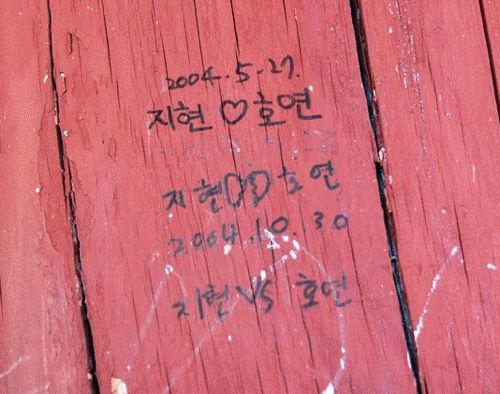 2004.5.27.
지현♡호연
지현♡♡호연
2004.10.30
지현 VS 호연